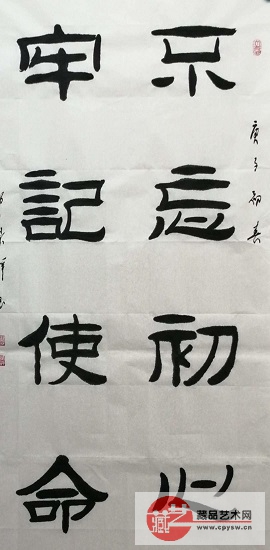 不忘初心
牢記使命
庚子初春
藏品艺术网
www.cpysw.cn